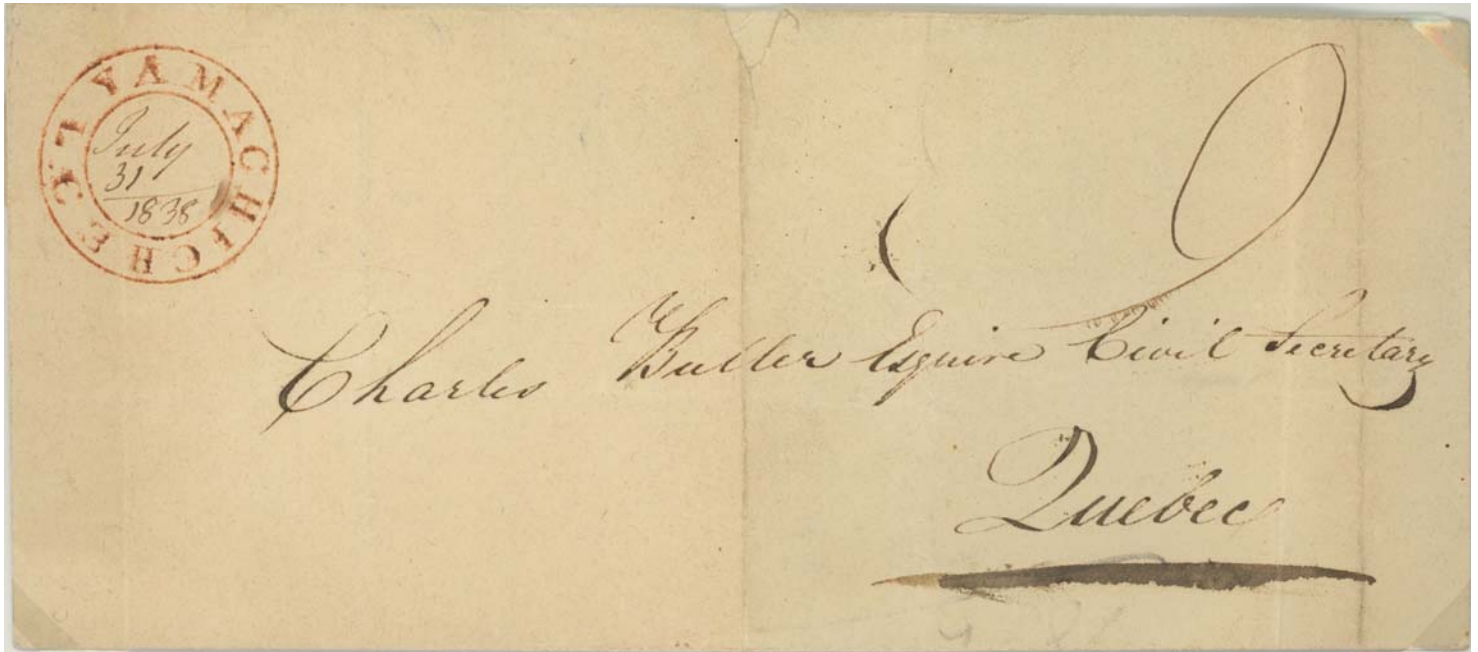 YAMACHICHE C L
July
31
1838
Charles Buller Esquire Civil Secretary
Quebec